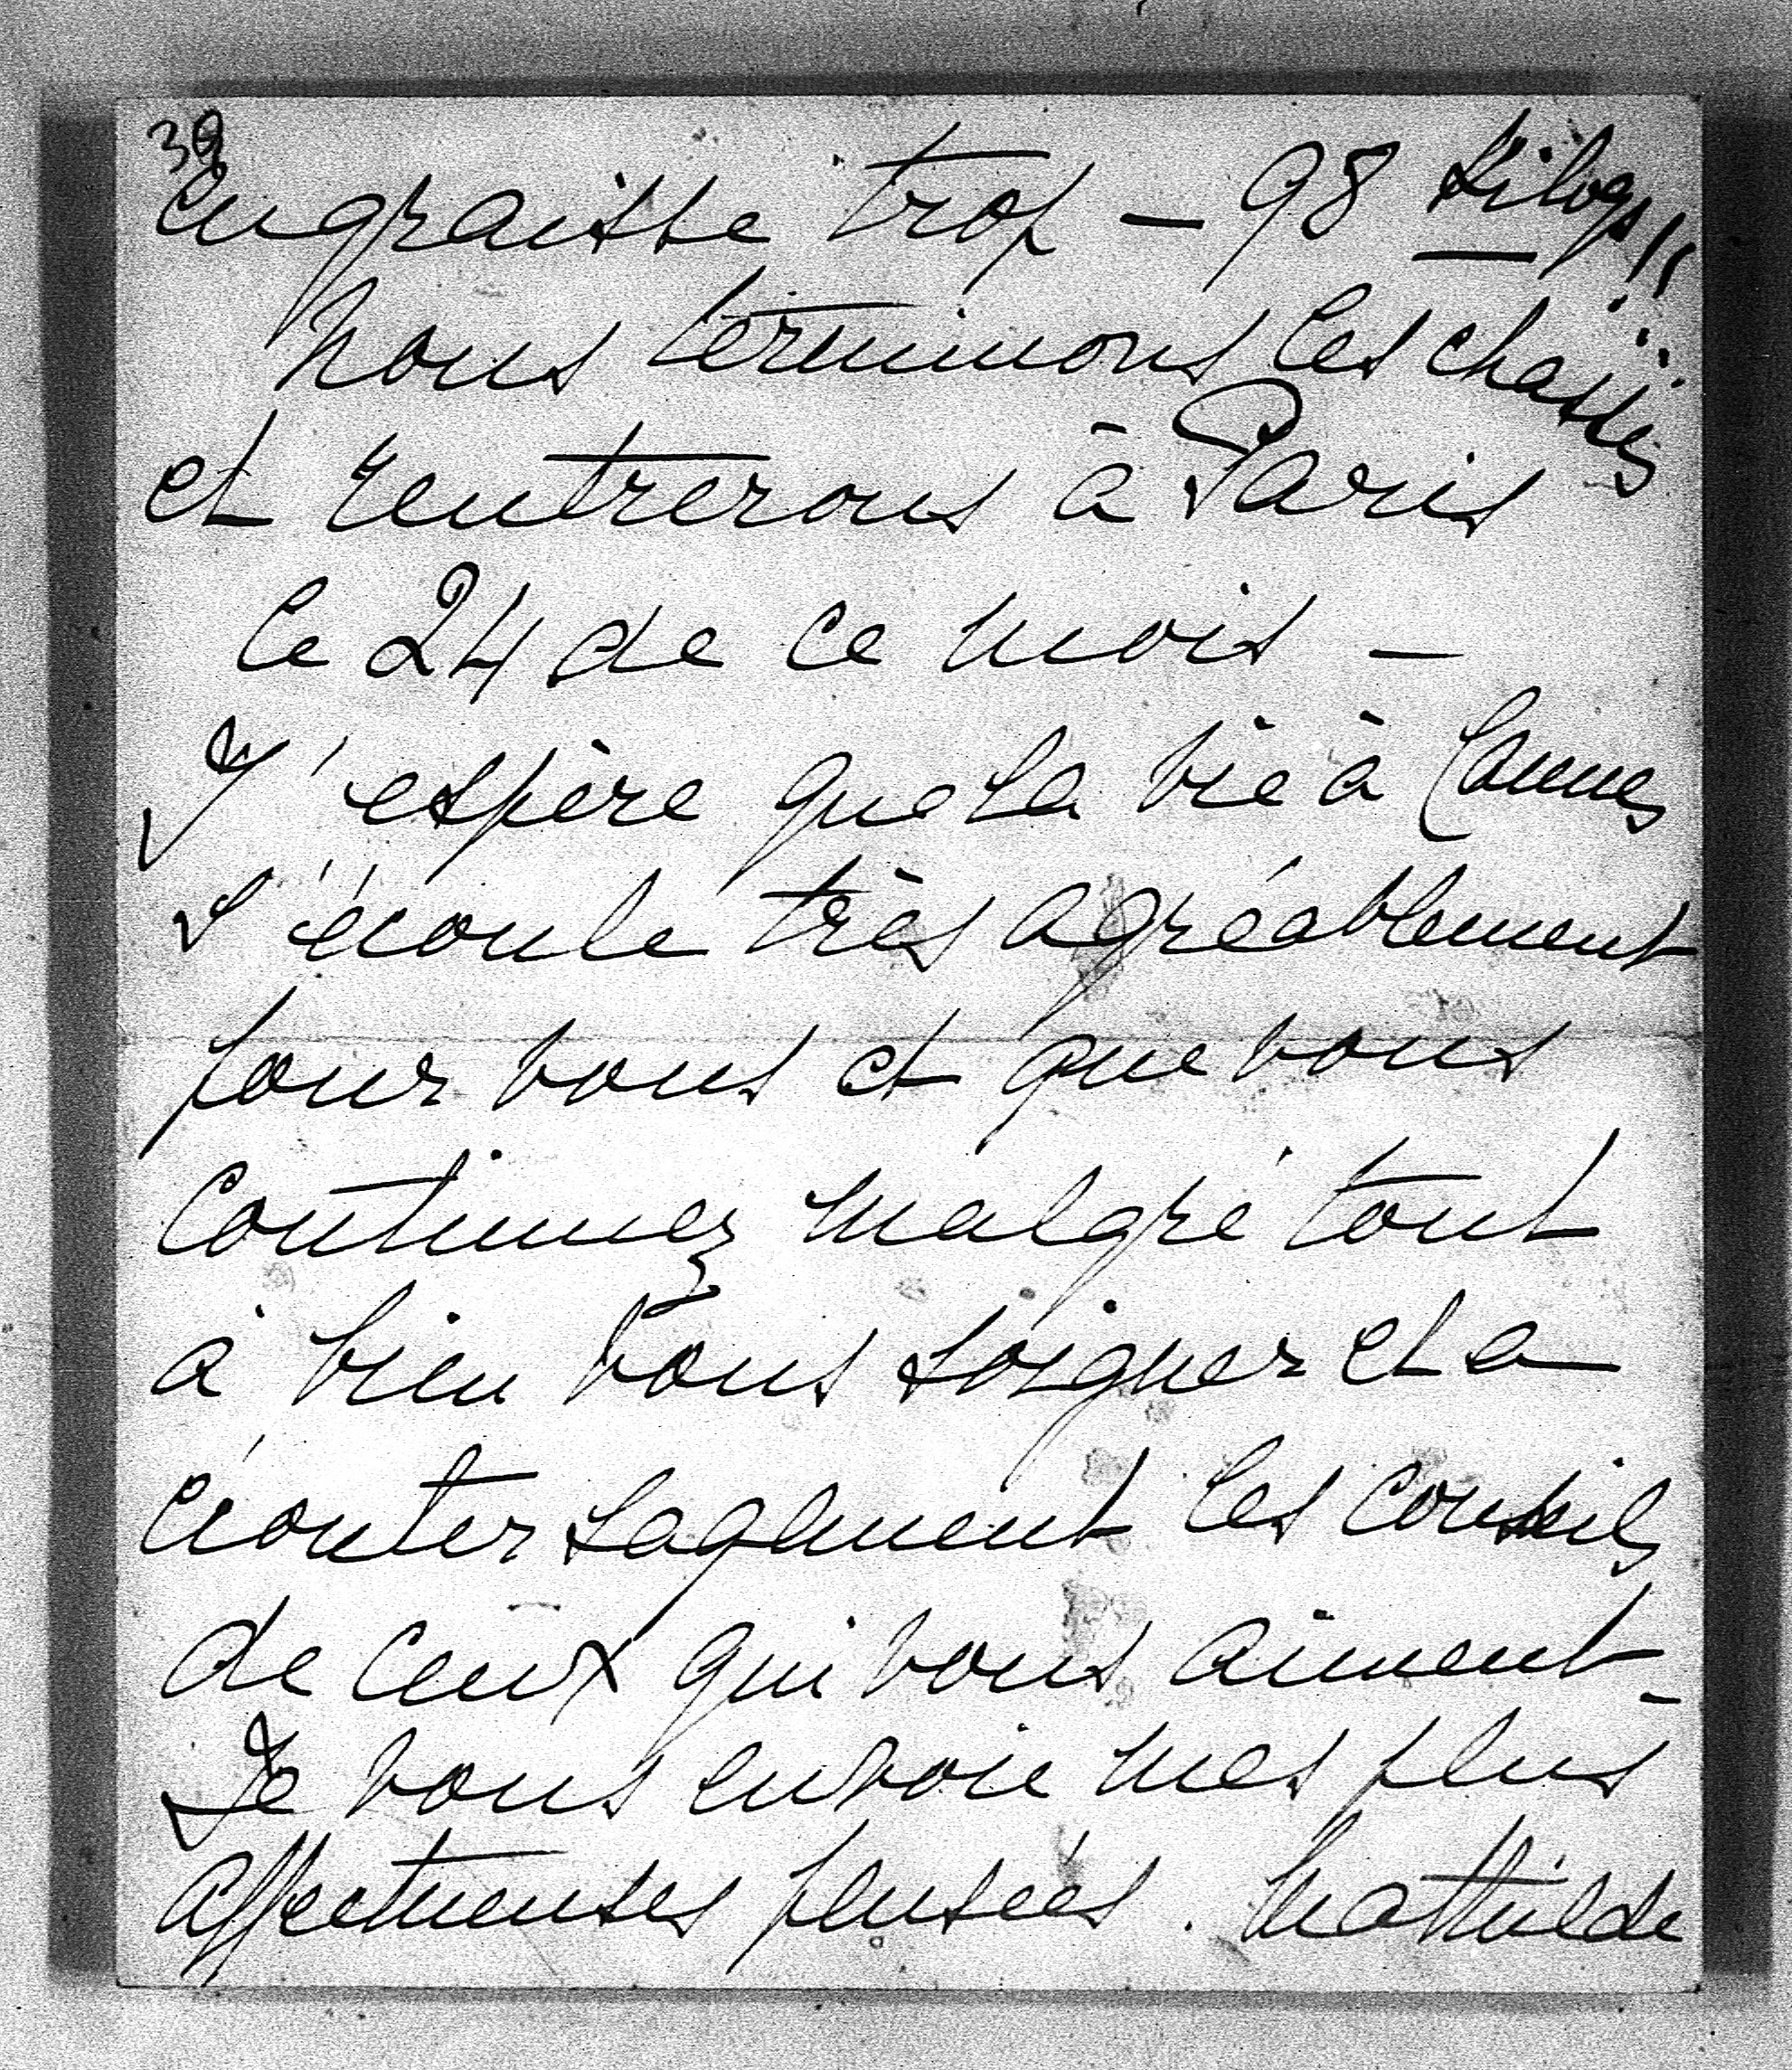 39
engraisse trop – 98 Kilogs!!
Nous terminons les chasses
et rentrerons à Paris
le 24 de ce mois –
J'espère que la vie à Cannes
s'écoule très agréablement
pour vous et que vous
continuez malgré tout
à bien vous soigner et a
écouter sagement les conseils
de ceux qui vous aiment –
Je vous envoie mes plus
affectueuses pensées. Mathilde